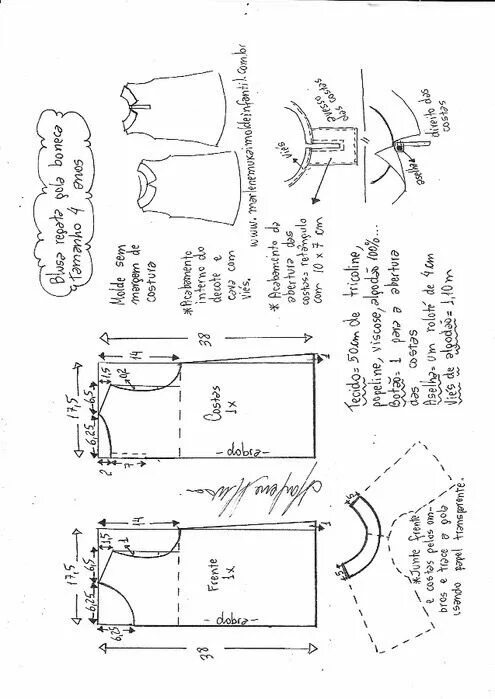 Blusa regata gola boneca
Tamanho 4 anos
Molde sem
margem de
costura
*Acabamento
interno do
decote e
cava com
viés.
www.marlenemukaimoldeinfantil.com.br
* Acabamento da
abertura das
costas= retângulo
com 10 x 7 cm
viés
avesso
das costas
aselha
direito das
costas
17,5
6,25
6,5
1,5
14
38
2
7
0,2
Costas
1x
- dobra -
1
Tecido= 50cm de tricoline,
popeline, viscose, algodão 100%...
Botão= 1 para a abertura
das costas
Aselha= um rolotê de 4 cm
Viés de algodão= 1,10m
Marlene Mukai
17,5
6,25
6,5
1,5
14
1
6,25
38
Frente
1x
- dobra -
1
*Junte frente
e costas pelos om-
bros e trace a gola
usando papel transparente.